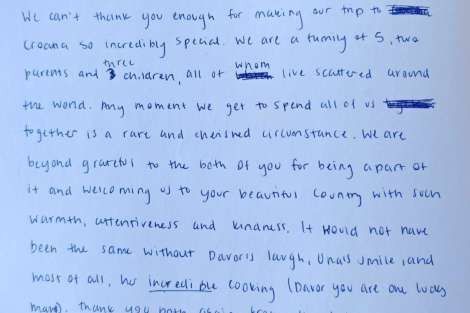 We can't thank you enough for making our trip to
Croatia so incredibly special. We are a family of 5, two
parents and three children, all of whom live scattered around
the world. Any moment we get to spend all of us
together is a rare and cherished circumstance. We are
beyond grateful to the both of you for being apart of
it and welcoming us to your beautiful country with such
warmth, attentiveness and kindness. It would not have
been the same without Davor's laugh, Una's smile, and
most of all, her incredible cooking (Davor you are one lucky
man). Thank you both